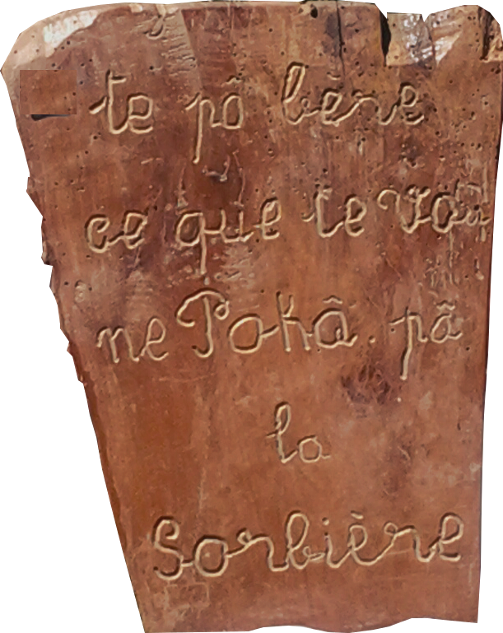 te pô bène
ce que te vo
ne Pokâ. pâ
la
Sorbière